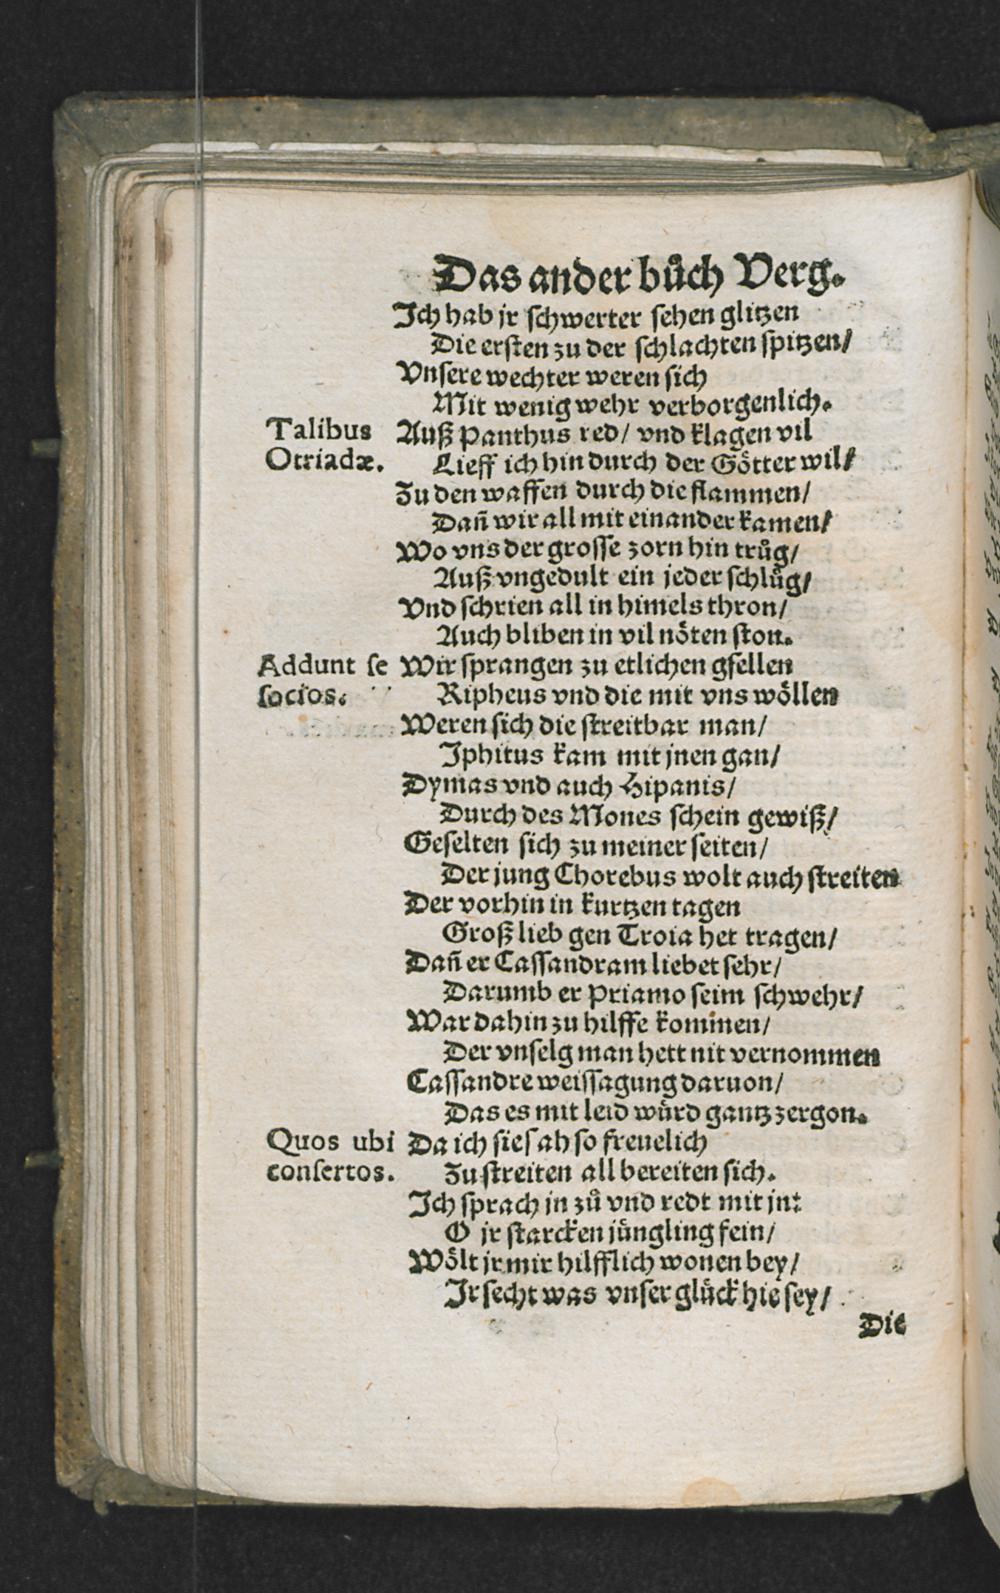 Das ander bůch Verg.
Ich hab jr schwerter sehen glitzen
Die ersten zu der schlachten spitzen/
Vnsere wechter weren sich
Mit wenig wehr verborgenlich.
Talibus
Otriadæ.
Auß Panthus red/ vnd klagen vil
Lieff ich hin durch der Götter wil/
Zu den waffen durch die flammen/
Dañ wir all mit einander kamen/
Wo vns der grosse zorn hin trůg/
Auß vngedult ein jeder schlůg/
Vnd schrien all in himels thron/
Auch bliben in vil nöten ston.
Addunt se
socios.
Wir sprangen zu etlichen gsellen
Ripheus vnd die mit vns wöllen
Weren sich die streitbar man/
Iphitus kam mit jnen gan/
Dymas vnd auch Hipanis/
Durch des Mones schein gewiß/
Geselten sich zu meiner seiten/
Der jung Chorebus wolt auch streiten
Der vorhin in kurtzen tagen
Groß lieb gen Troia het tragen/
Dañ er Cassandram liebet sehr/
Darumb er Priamo seim schwehr/
War dahin zu hilffe kommen/
Der vnselg man hett nit vernommen
Cassandre weissagung daruon/
Das es mit leid würd gantz zergon.
Quos ubi
consertos.
Da ich sie sah so freuelich
Zu streiten all bereiten sich.
Ich sprach jn zů vnd redt mit jn:
O jr starcken jüngling fein/
Wölt jr mir hilfflich wonen bey/
Ir secht was vnser glück hie sey/
Die